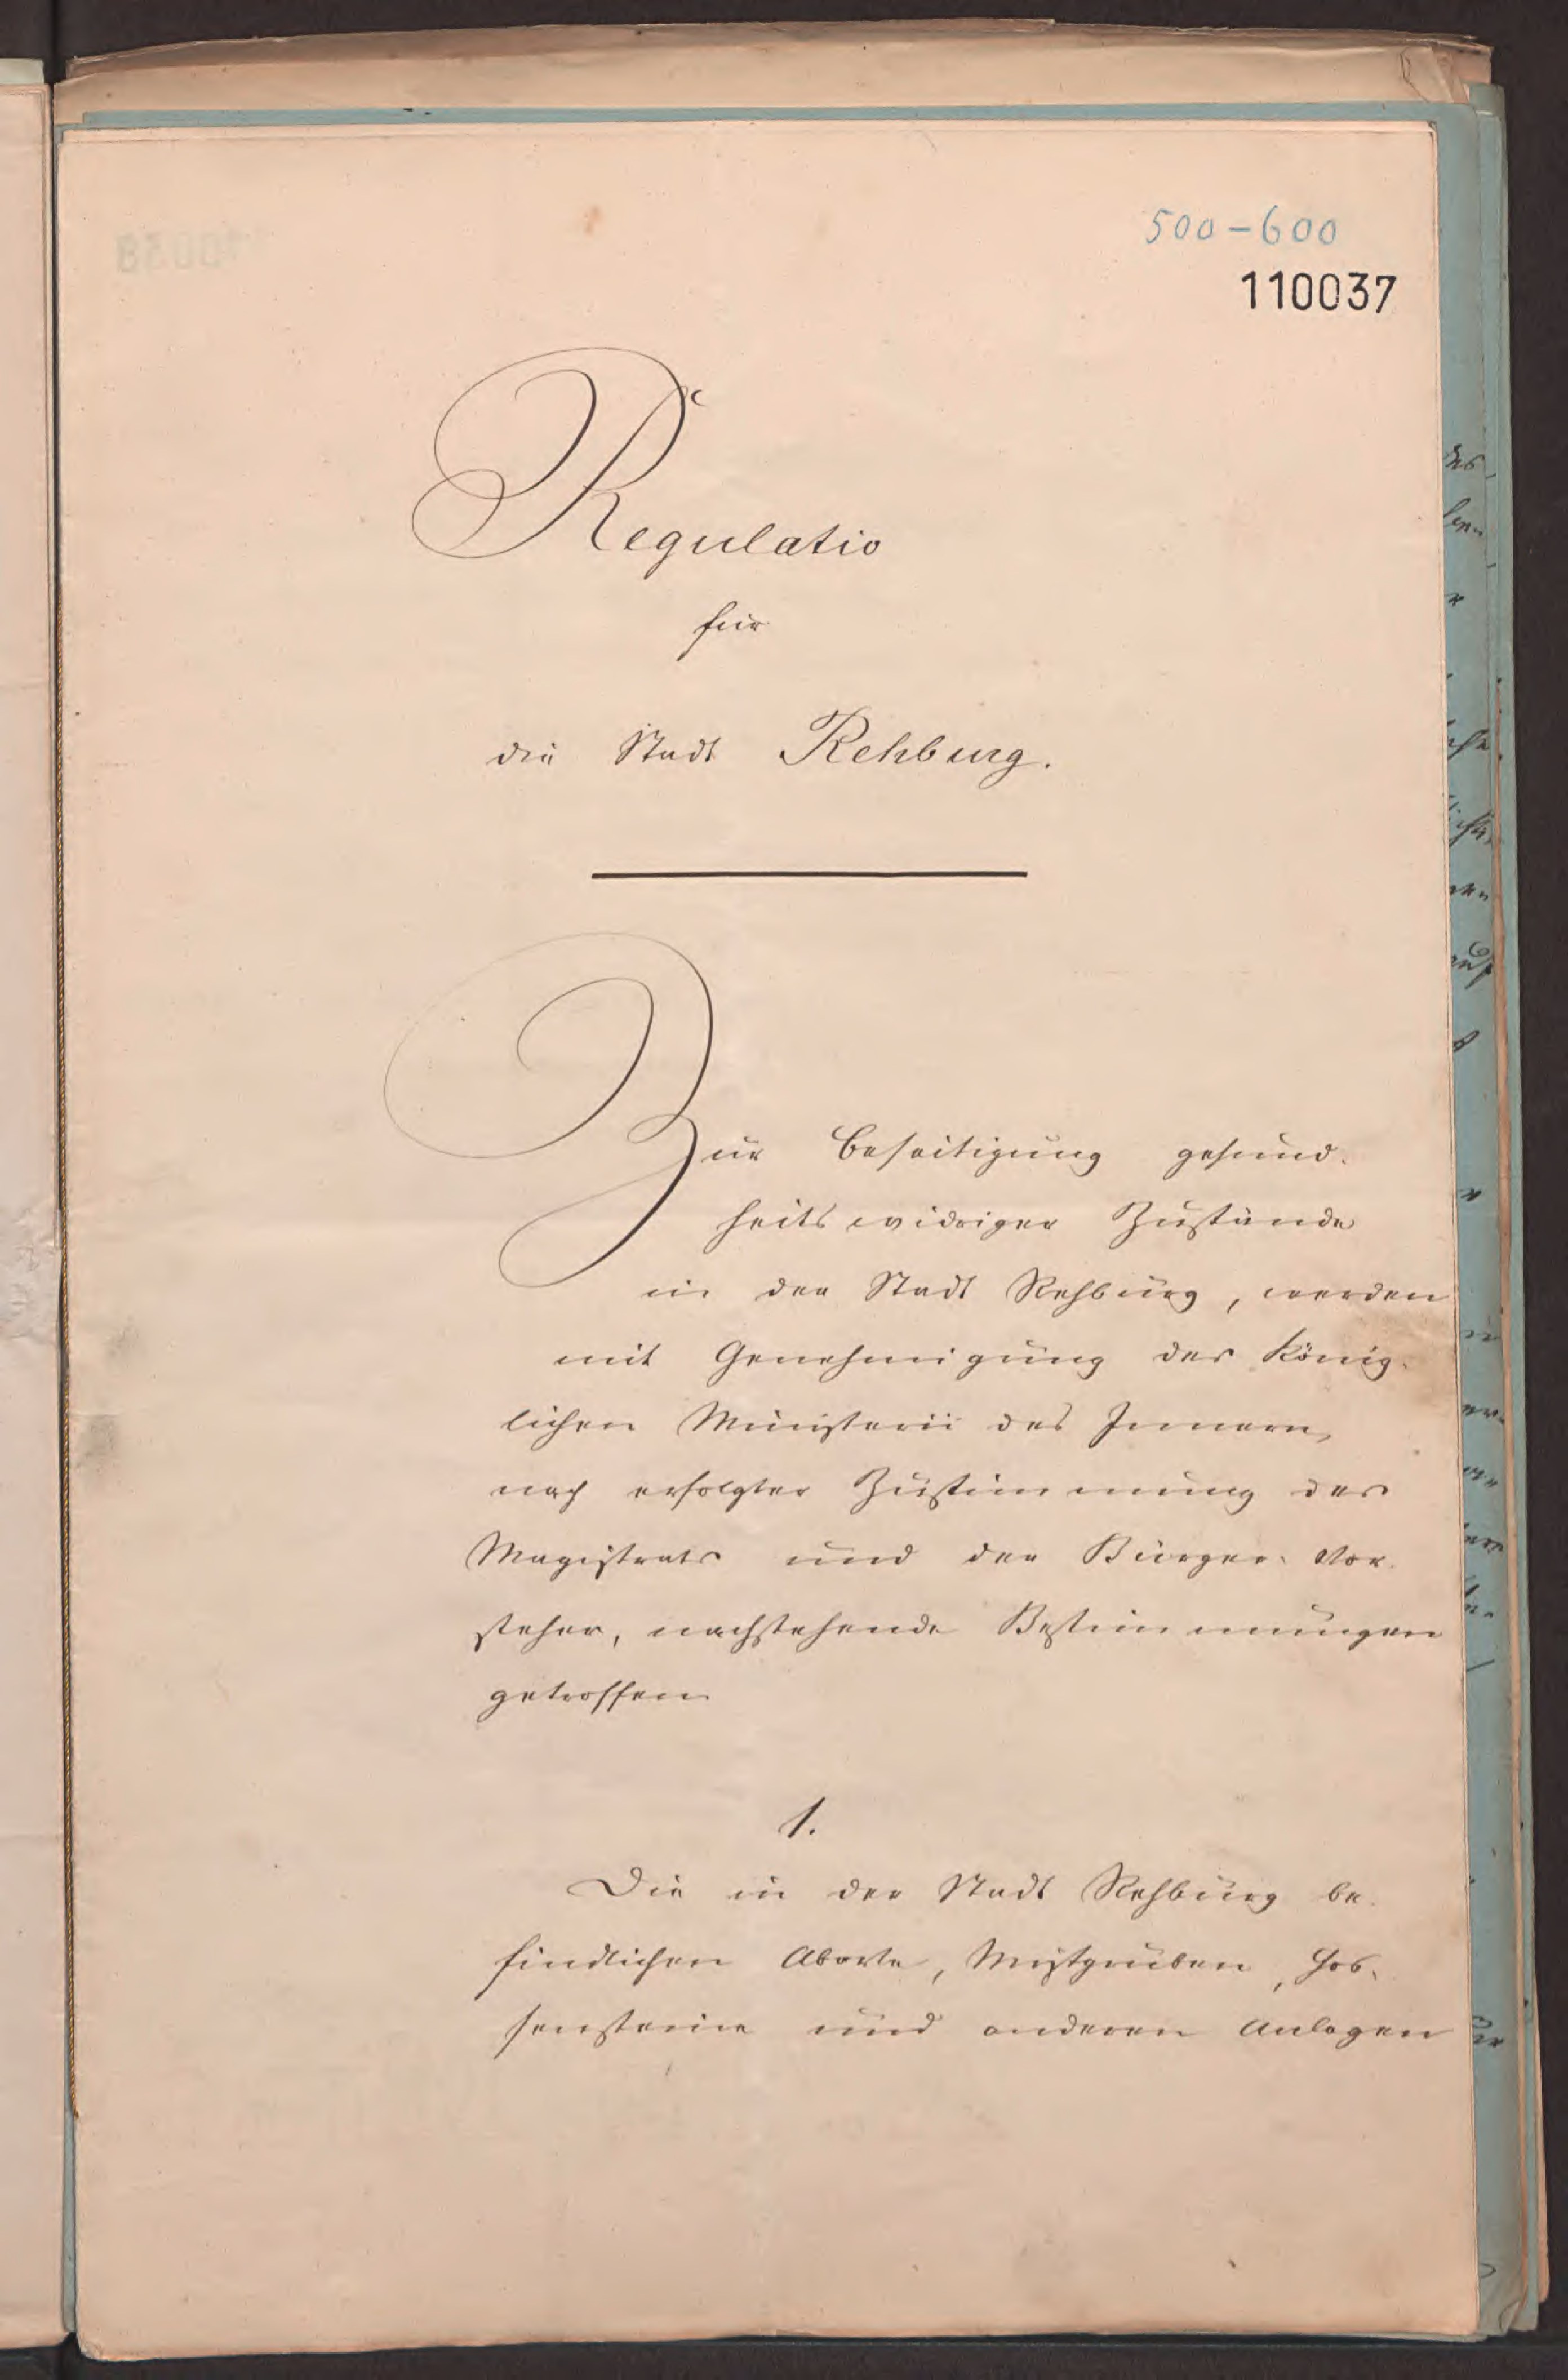 500-600
110037
Regulatio
für
die Stadt Rehburg.
Zur Beseitigung gesund-
heitswidriger Zustände
in der Stadt Rehburg, werden
mit Genehmigung des König-
lichen Ministerii des Innern,
nach erfolgter Zustimmung des
Magistrats und der Bürger-Vor-
steher, nachstehende Bestimmungen
getroffen
1.
Die in der Stadt Rehburg be-
findlichen Aborte, Mistgruben, Gos-
sensteine und anderen Anlagen